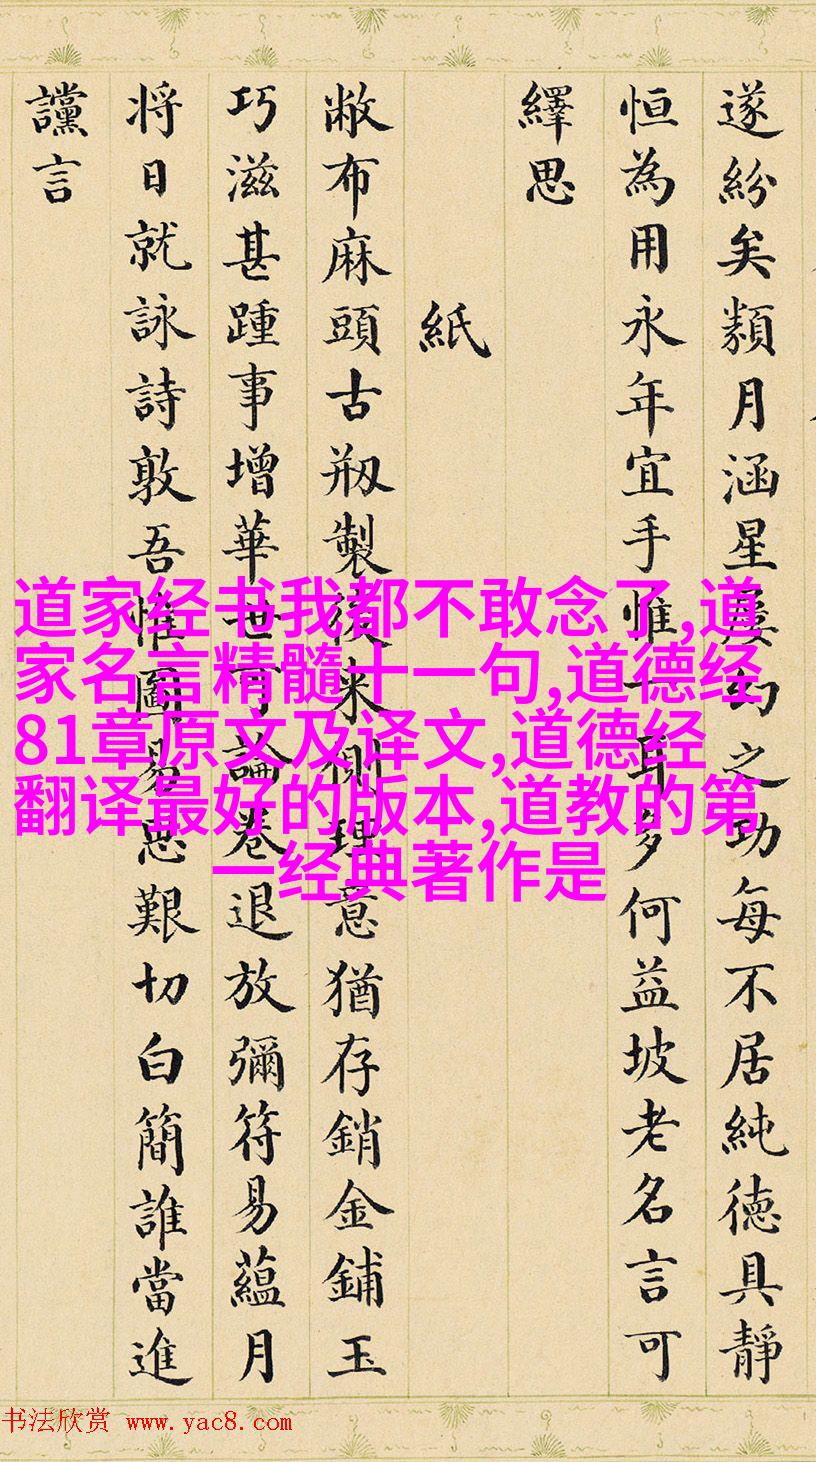 遂紛矣類月涵星屢幻之功每不居純德具靜
恒為用永年宜手惟一耳多何益坡老名言可
繹思
紙
敝布麻頭古剏製後来側理意猶存銷金鋪玉
巧滋甚踵事增華世可論卷退放彌符易蘊月
将日就詠詩敦吾惟圖易思艱切白簡誰當進
讜言
道家经书我都不敢念了,道
家名言精髓十一句,道德经
81章原文及译文,道德经
翻译最好的版本,道教的第
一经典著作是
书法欣赏 www.yac8.com